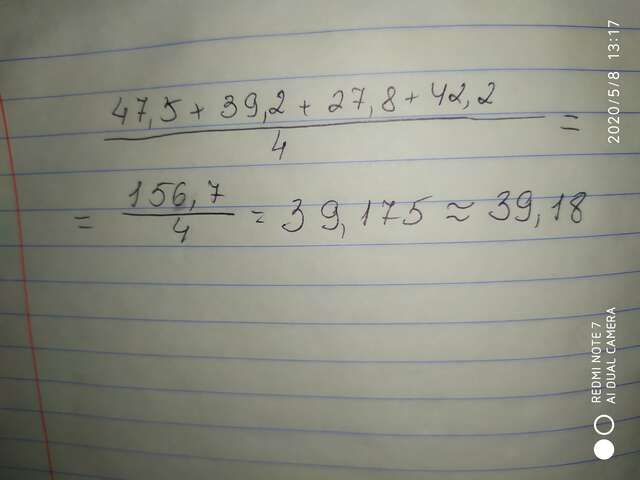 47,5 + 39,2 + 27,8 + 42,2
4
=
= 156,7
4
= 39,175 ≈ 39,18
2020/5/8 13:17
REDMI NOTE 7
AI DUAL CAMERA